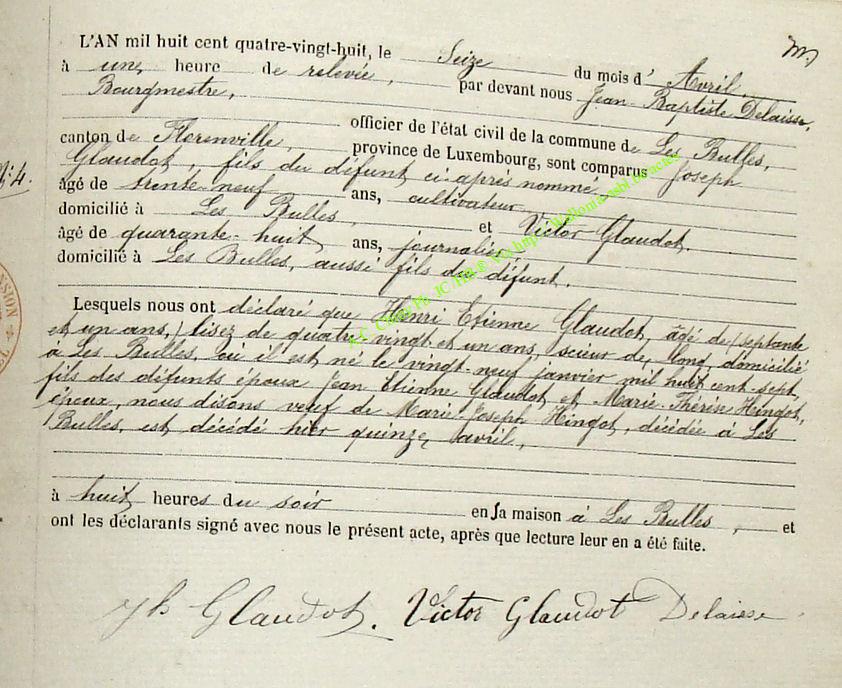 m.
L'AN mil huit cent quatre-vingt-huit, le Seize du mois d' Avril,
à une heure de relevée, par devant nous Jean-Baptiste Delaisse,
Bourgmestre, officier de l'état civil de la commune de Les Bulles,
canton de Florenville, province de Luxembourg, sont comparus Joseph
Glaudot, fils du défunt ci après nommé
N: 4.
âgé de trente-neuf ans, cultivateur,
domicilié à Les Bulles, et Victor Glaudot.
âgé de quarante-huit ans, journalier
domicilié à Les Bulles, aussi fils du défunt.
Lesquels nous ont déclaré que Henri Etienne Glaudot, âgé de (septante
et un ans,) lisez de quatre vingt et un ans, scieur de long, domicilié
à Les Bulles, où il est né le vingt-neuf janvier mil huit cent sept,
fils des défunts époux Jean Etienne Glaudot et Marie-Thérèse Hingot,
époux, nous disons veuf de Marie Joseph Hingot, décédée à Les
Bulles, est décédé hier quinze avril,
à huit heures du soir en sa maison à Les Bulles, et
ont les déclarants signé avec nous le présent acte, après que lecture leur en a été faite.
Jh Glaudot. Victor Glaudot Delaisse